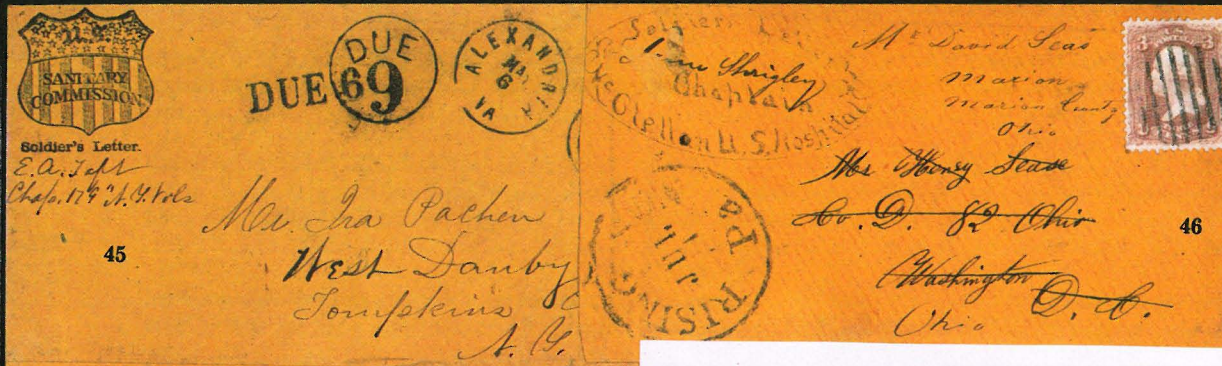 U.S.
SANITARY
COMMISSION
Soldier's Letter.
E. A. Taft
Chap. 179" N.Y. Vols
DUE 6
DUE
9
ALEXANDRIA
6
VA
Mr. Ira Pachen
West Danby
Tompkins
N. Y.
45
Soldiers Let
Shrigley
Chaplain
McClellan U.S. Hospital
RISING
Pa
JUL
Mr David Seas
Marion
Marion County
Ohio
3 3
Mr Henry Sease
Co. D. 82 Ohio
Washington D. C.
Ohio
46